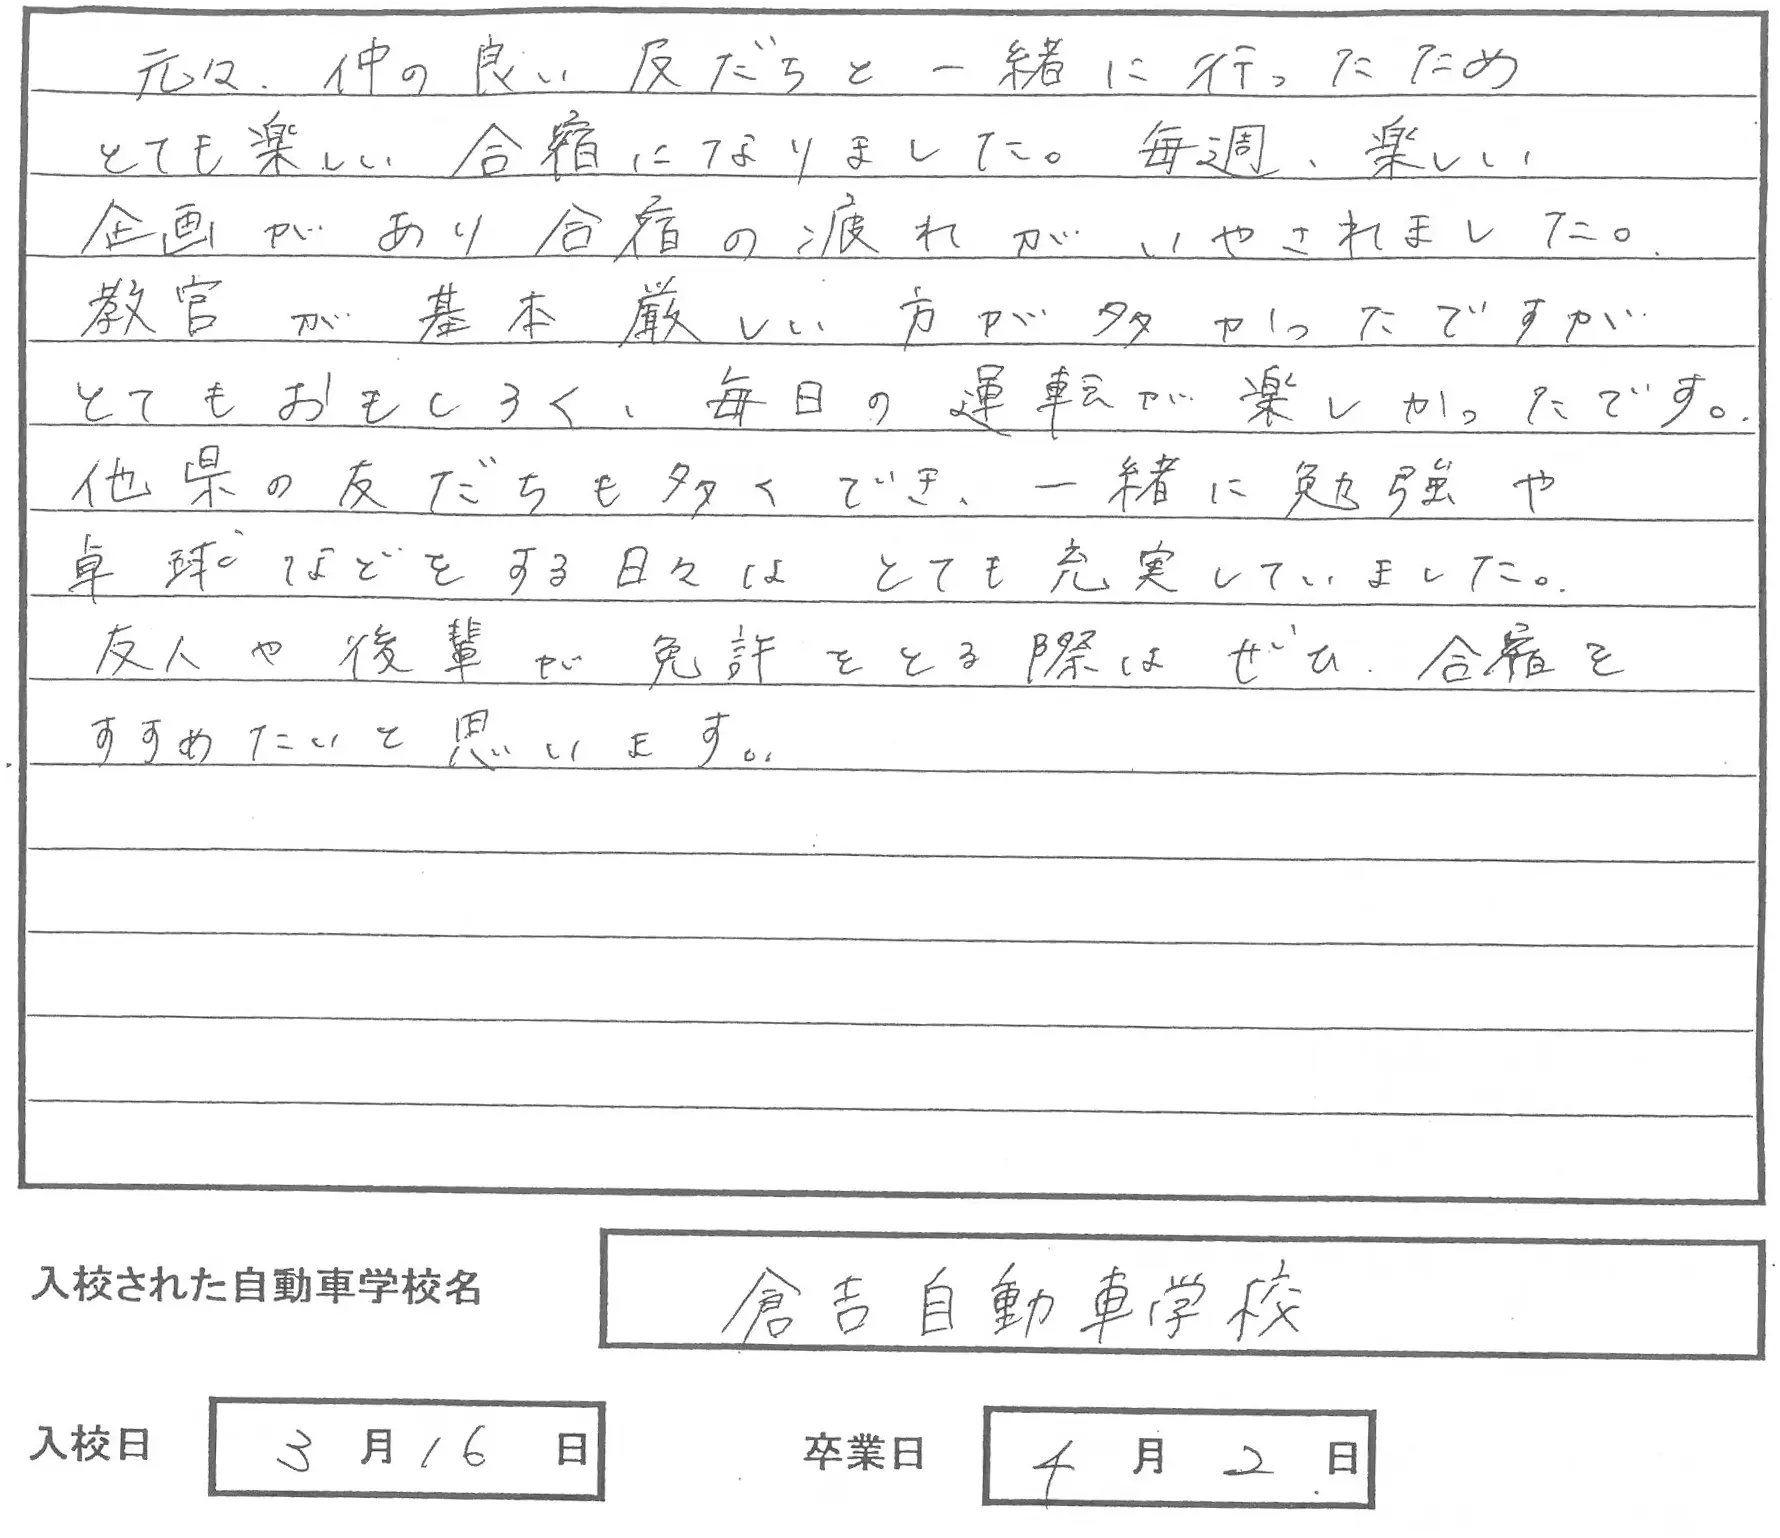 元々、仲の良い友だちと一緒に行ったため
とても楽しい合宿になりました。毎週、楽しい
企画があり合宿の疲れがいやされました。
教官が基本厳しい方が多かったですが
とてもおもしろく、毎日の運転が楽しかったです。
他県の友だちも多くでき、一緒に勉強や
卓球などをする日々はとても充実していました。
友人や後輩が免許をとる際はぜひ、合宿を
すすめたいと思います。
入校された自動車学校名 倉吉自動車学校
入校日 3月16日 卒業日 4月2日